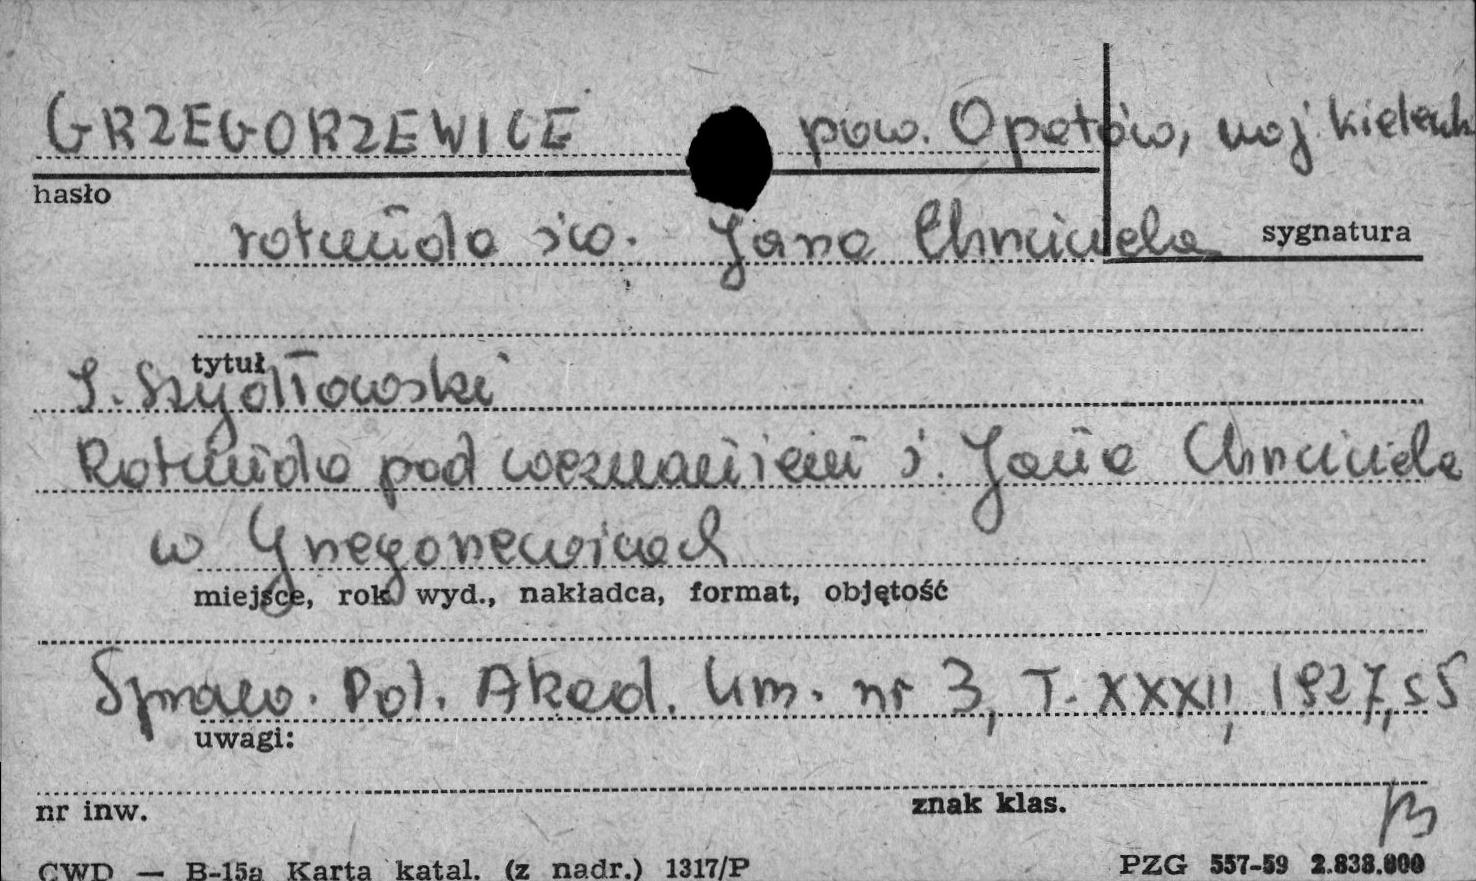 GRZEGORZEWICE pow. Opatów, woj. kieleck
hasło
rotunda św. Jana Chrzciciela
sygnatura
tytuł
S. Szydłowski
Rotunda pod wezwaniem ś. Jana Chrzciciela
w Grzegorzewicach
miejsce, rok wyd., nakładca, format, objętość
Spraw. Pol. Akad. Um. nr 3, T. XXXII, 1927, s 5
uwagi:
nr inw.
znak klas.
CWD — B-15a Karta katal. (z nadr.) 1317/P
PZG 557-59 2.838.000